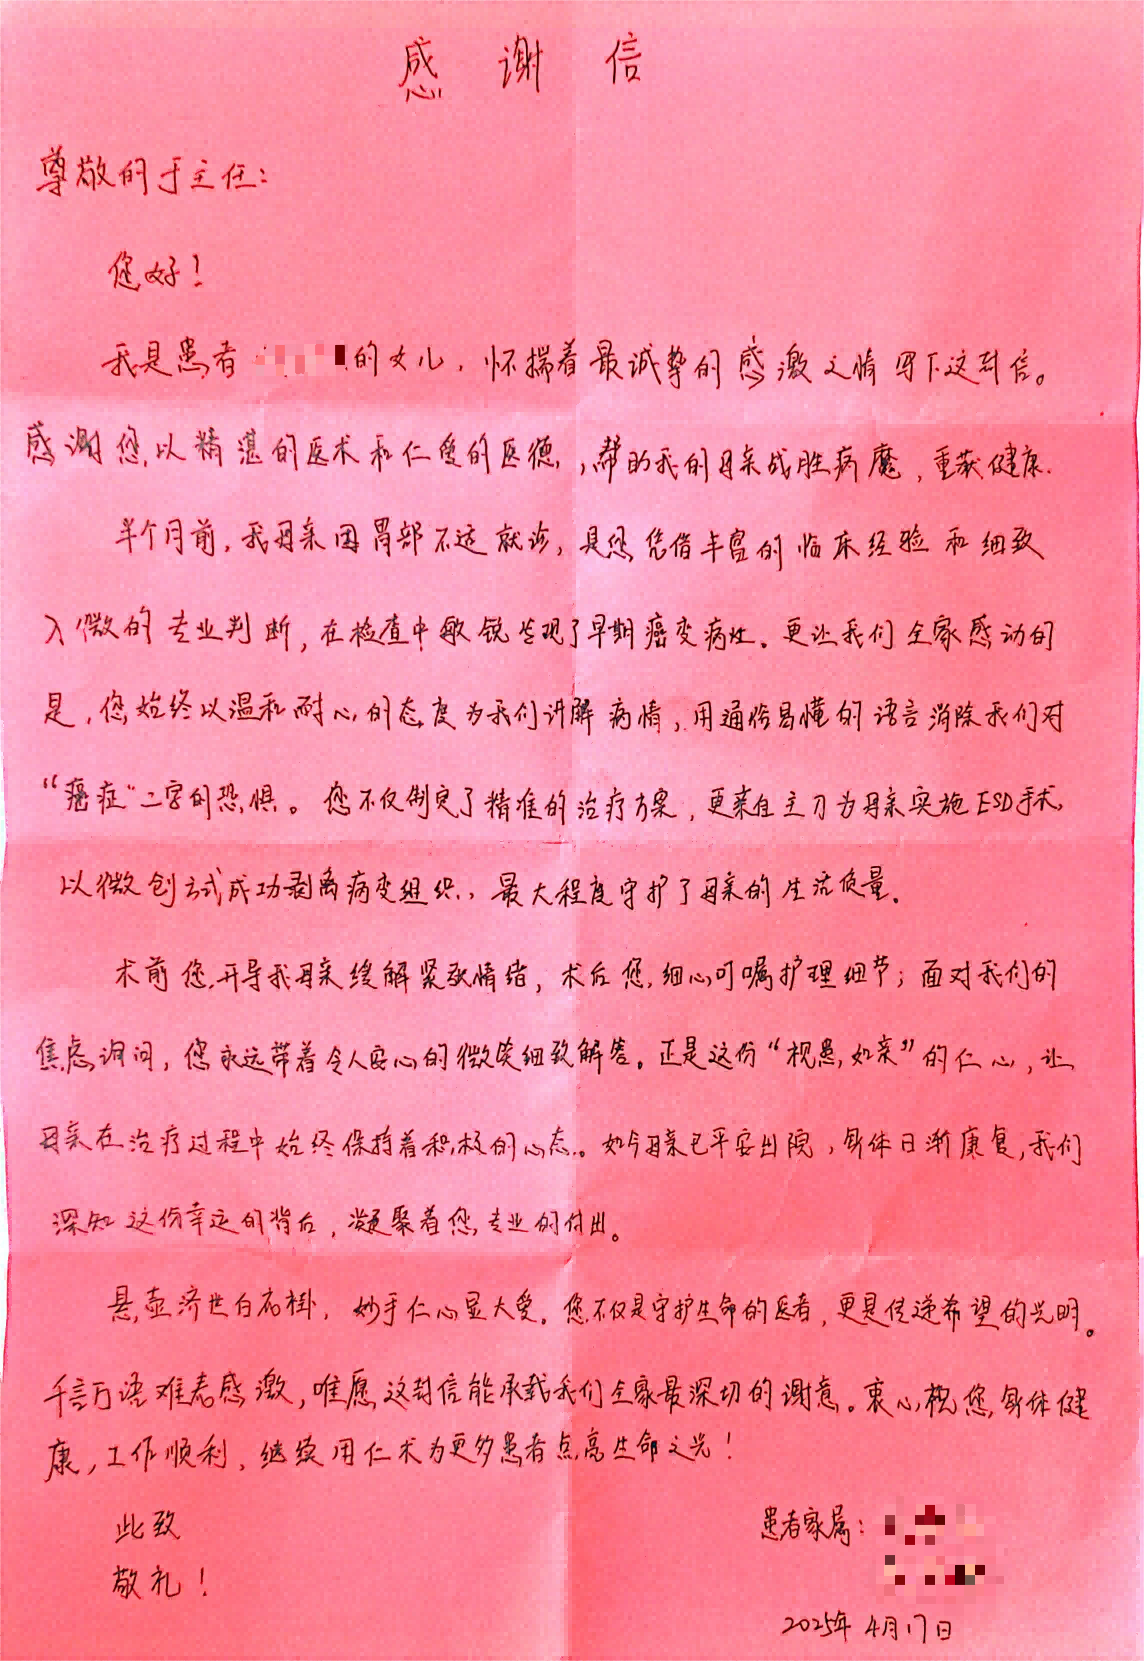 感谢信
尊敬的于主任：
您好！
我是患者的女儿，怀揣着最诚挚的感激之情写下这封信。
感谢您以精湛的医术和仁爱的医德，帮助我的母亲战胜病魔，重获健康.
半个月前，我母亲因胃部不适就诊，是您凭借丰富的临床经验和细致
入微的专业判断，在检查中敏锐发现了早期癌变病灶。更让我们全家感动的
是，您始终以温和耐心的态度为我们讲解病情，用通俗易懂的语言消除我们对
“癌症”二字的恐惧。您不仅制定了精准的治疗方案，更亲自主刀为母亲实施ESD手术，
以微创方式成功剥离病变组织，最大程度守护了母亲的生活质量。
术前您开导我母亲缓解紧张情绪，术后您细心叮嘱护理细节；面对我们的
焦虑询问，您永远带着令人安心的微笑细致解答。正是这份“视患如亲”的仁心，让
母亲在治疗过程中始终保持着积极的心态。如今母亲已平安出院，身体日渐康复，我们
深知这份幸运的背后，凝聚着您专业的付出。
悬壶济世白衣褂，妙手仁心显大爱。您不仅是守护生命的医者，更是传递希望的光明。
千言万语难表感激，唯愿这封信能承载我们全家最深切的谢意。衷心祝您身体健
康，工作顺利，继续用仁术为更多患者点高生命之光！
此致
患者家属：
敬礼！
2025年4月17日